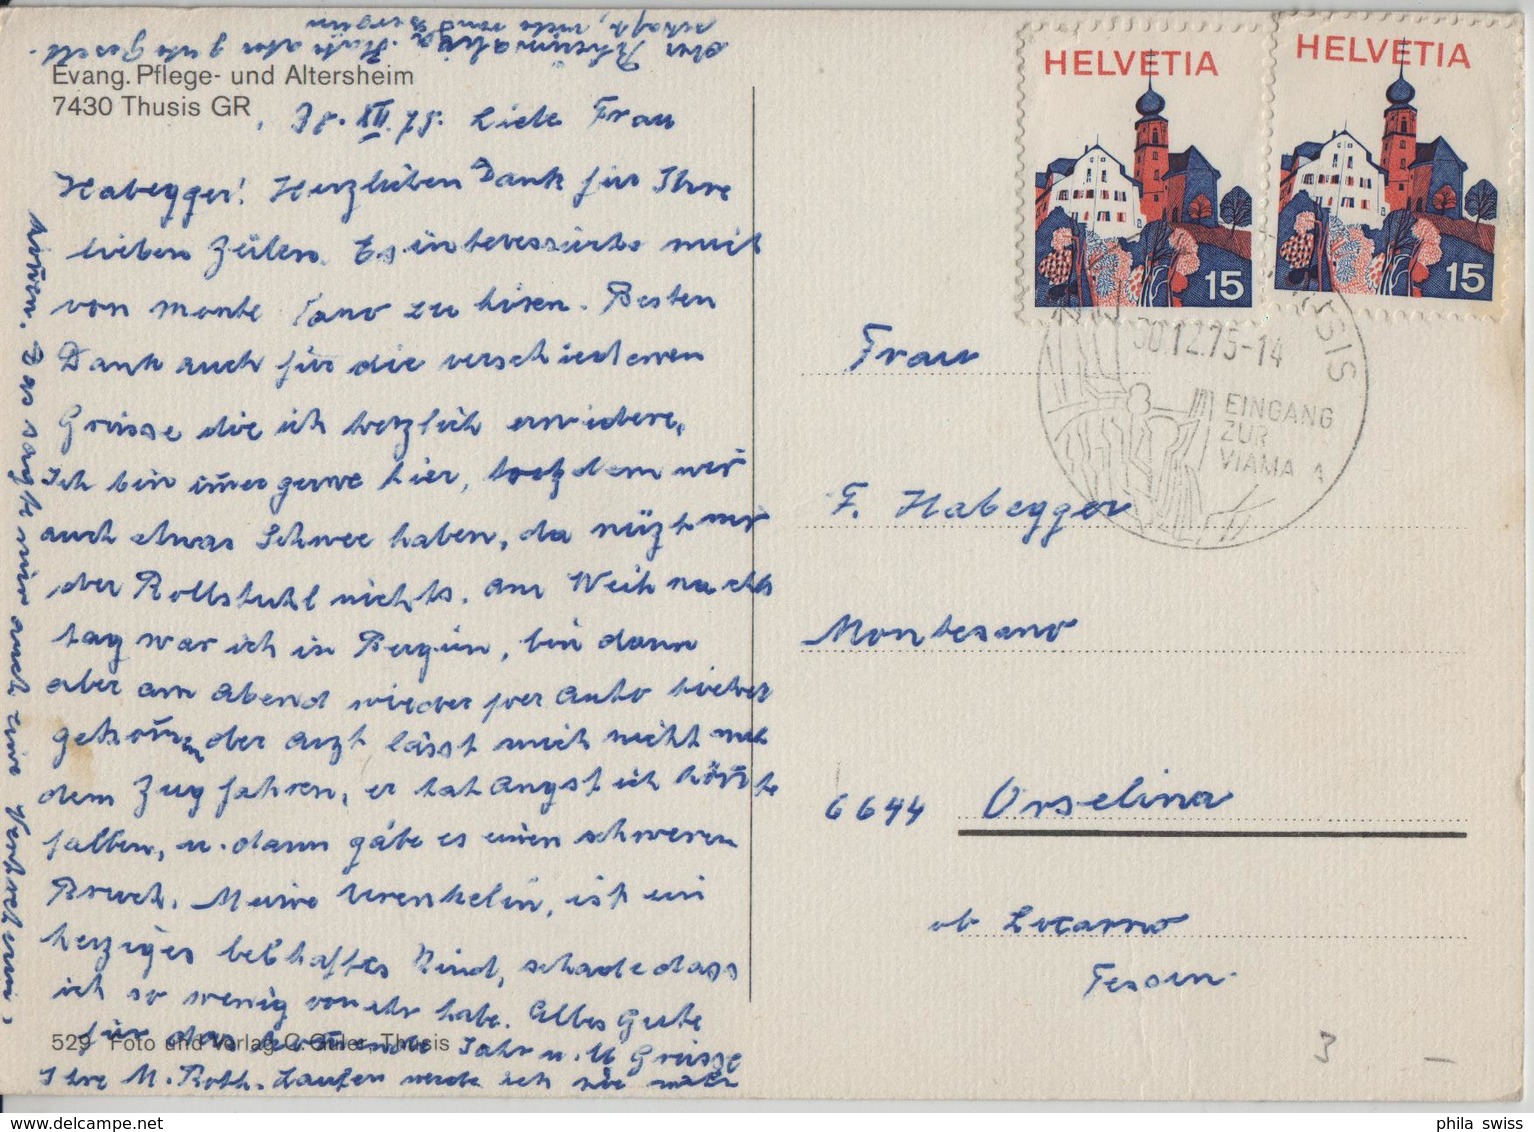 Evang. Pflege- und Altersheim
7430 Thusis GR
30. XII. 75. Liebe Frau
Habegger! Herzlichen Dank für Ihre
lieben Zeilen. Es interessierte mich
von Monte Sano zu hören. Besten
Dank auch für die verschiedenen
Grüsse die ich herzlich erwidere.
Ich bin im̄er gerne hier, trotzdem wir
auch etwas Schnee haben, da nützt mir
der Rollstuhl nichts. Am Weihnachts
tag war ich in Bergün, bin dann
aber am Abend wieder per Auto hieher
gekom̄en der Arzt lässt mich nicht mit
dem Zug fahren, er hat Angst ich kön̄te
fallen, u. dann gäbe es einen schweren
Bruch. Meine Urenkelin, ist ein
herziges lebhaftes Kind, schade dass
ich so wenig von ihr habe. Alles Gute
für das kom̄ende Jahr u. Grüsse
Ihre M. Roth. Laufen werde ich nie mehr
kön̄en. Das sagte mir auch eine
der Rheumatik a. Hüfte aber gute Gesell-
schaft, viele von Bergün
529 Foto und Verlag C. Guler, Thusis
HELVETIA
15
HELVETIA
15
THUSIS
30.12.75-14
EINGANG
ZUR
VIAMALA
Frau
F. Habegger
Montesano
6644 Orselina
ob Locarno
Tessin.
3 –
phila swiss